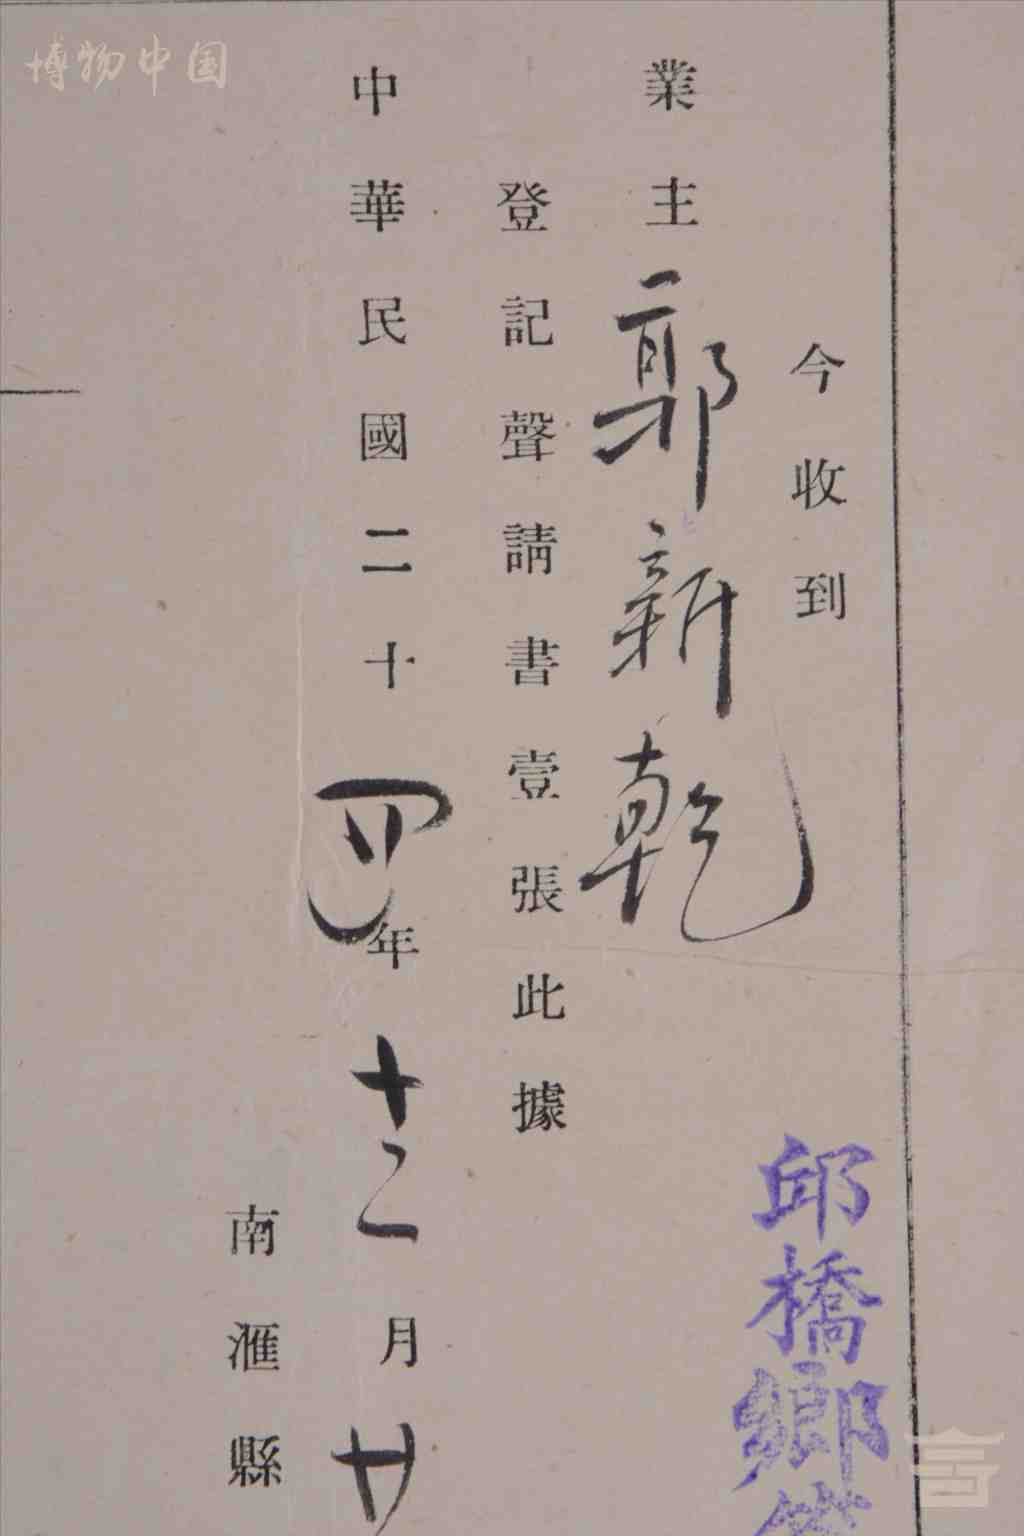 博物中国
今收到
業主郭新乾
登記聲請書壹張此據
中華民國二十四年十二月廿
南滙縣
邱橋鄉